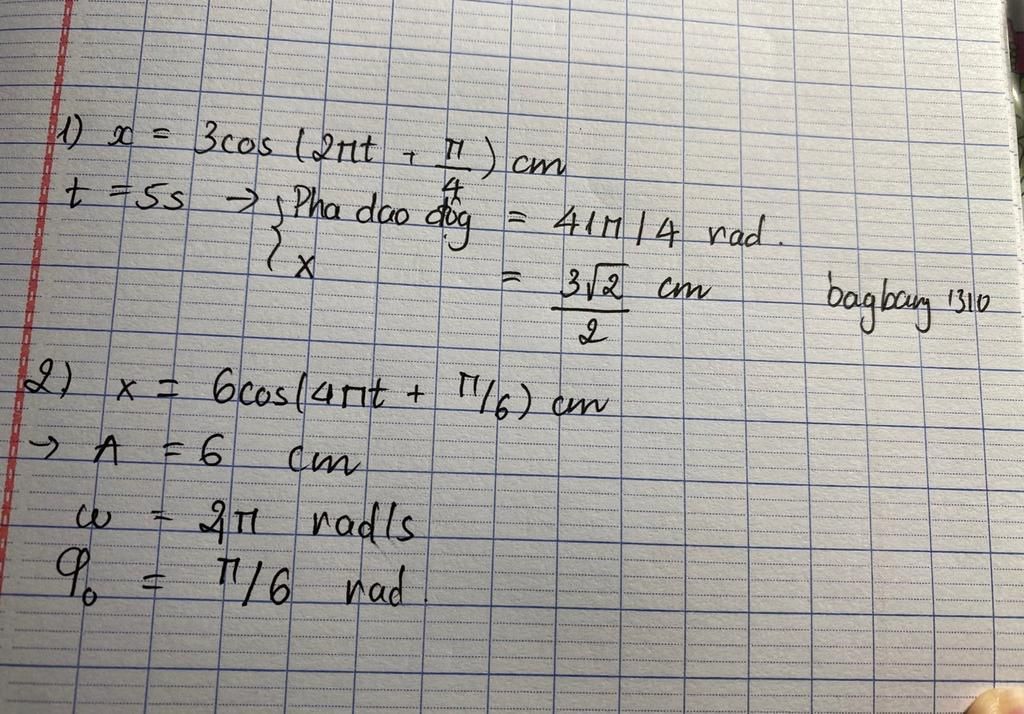 1) x = 3cos (2πt + π/4) cm
t = 5s → { Pha dao động = 41π/4 rad.
x = 3√2/2 cm
bagbang 1310
2) x = 6cos(4πt + π/6) cm
→ A = 6 cm
ω = 2π rad/s
φ₀ = π/6 rad.